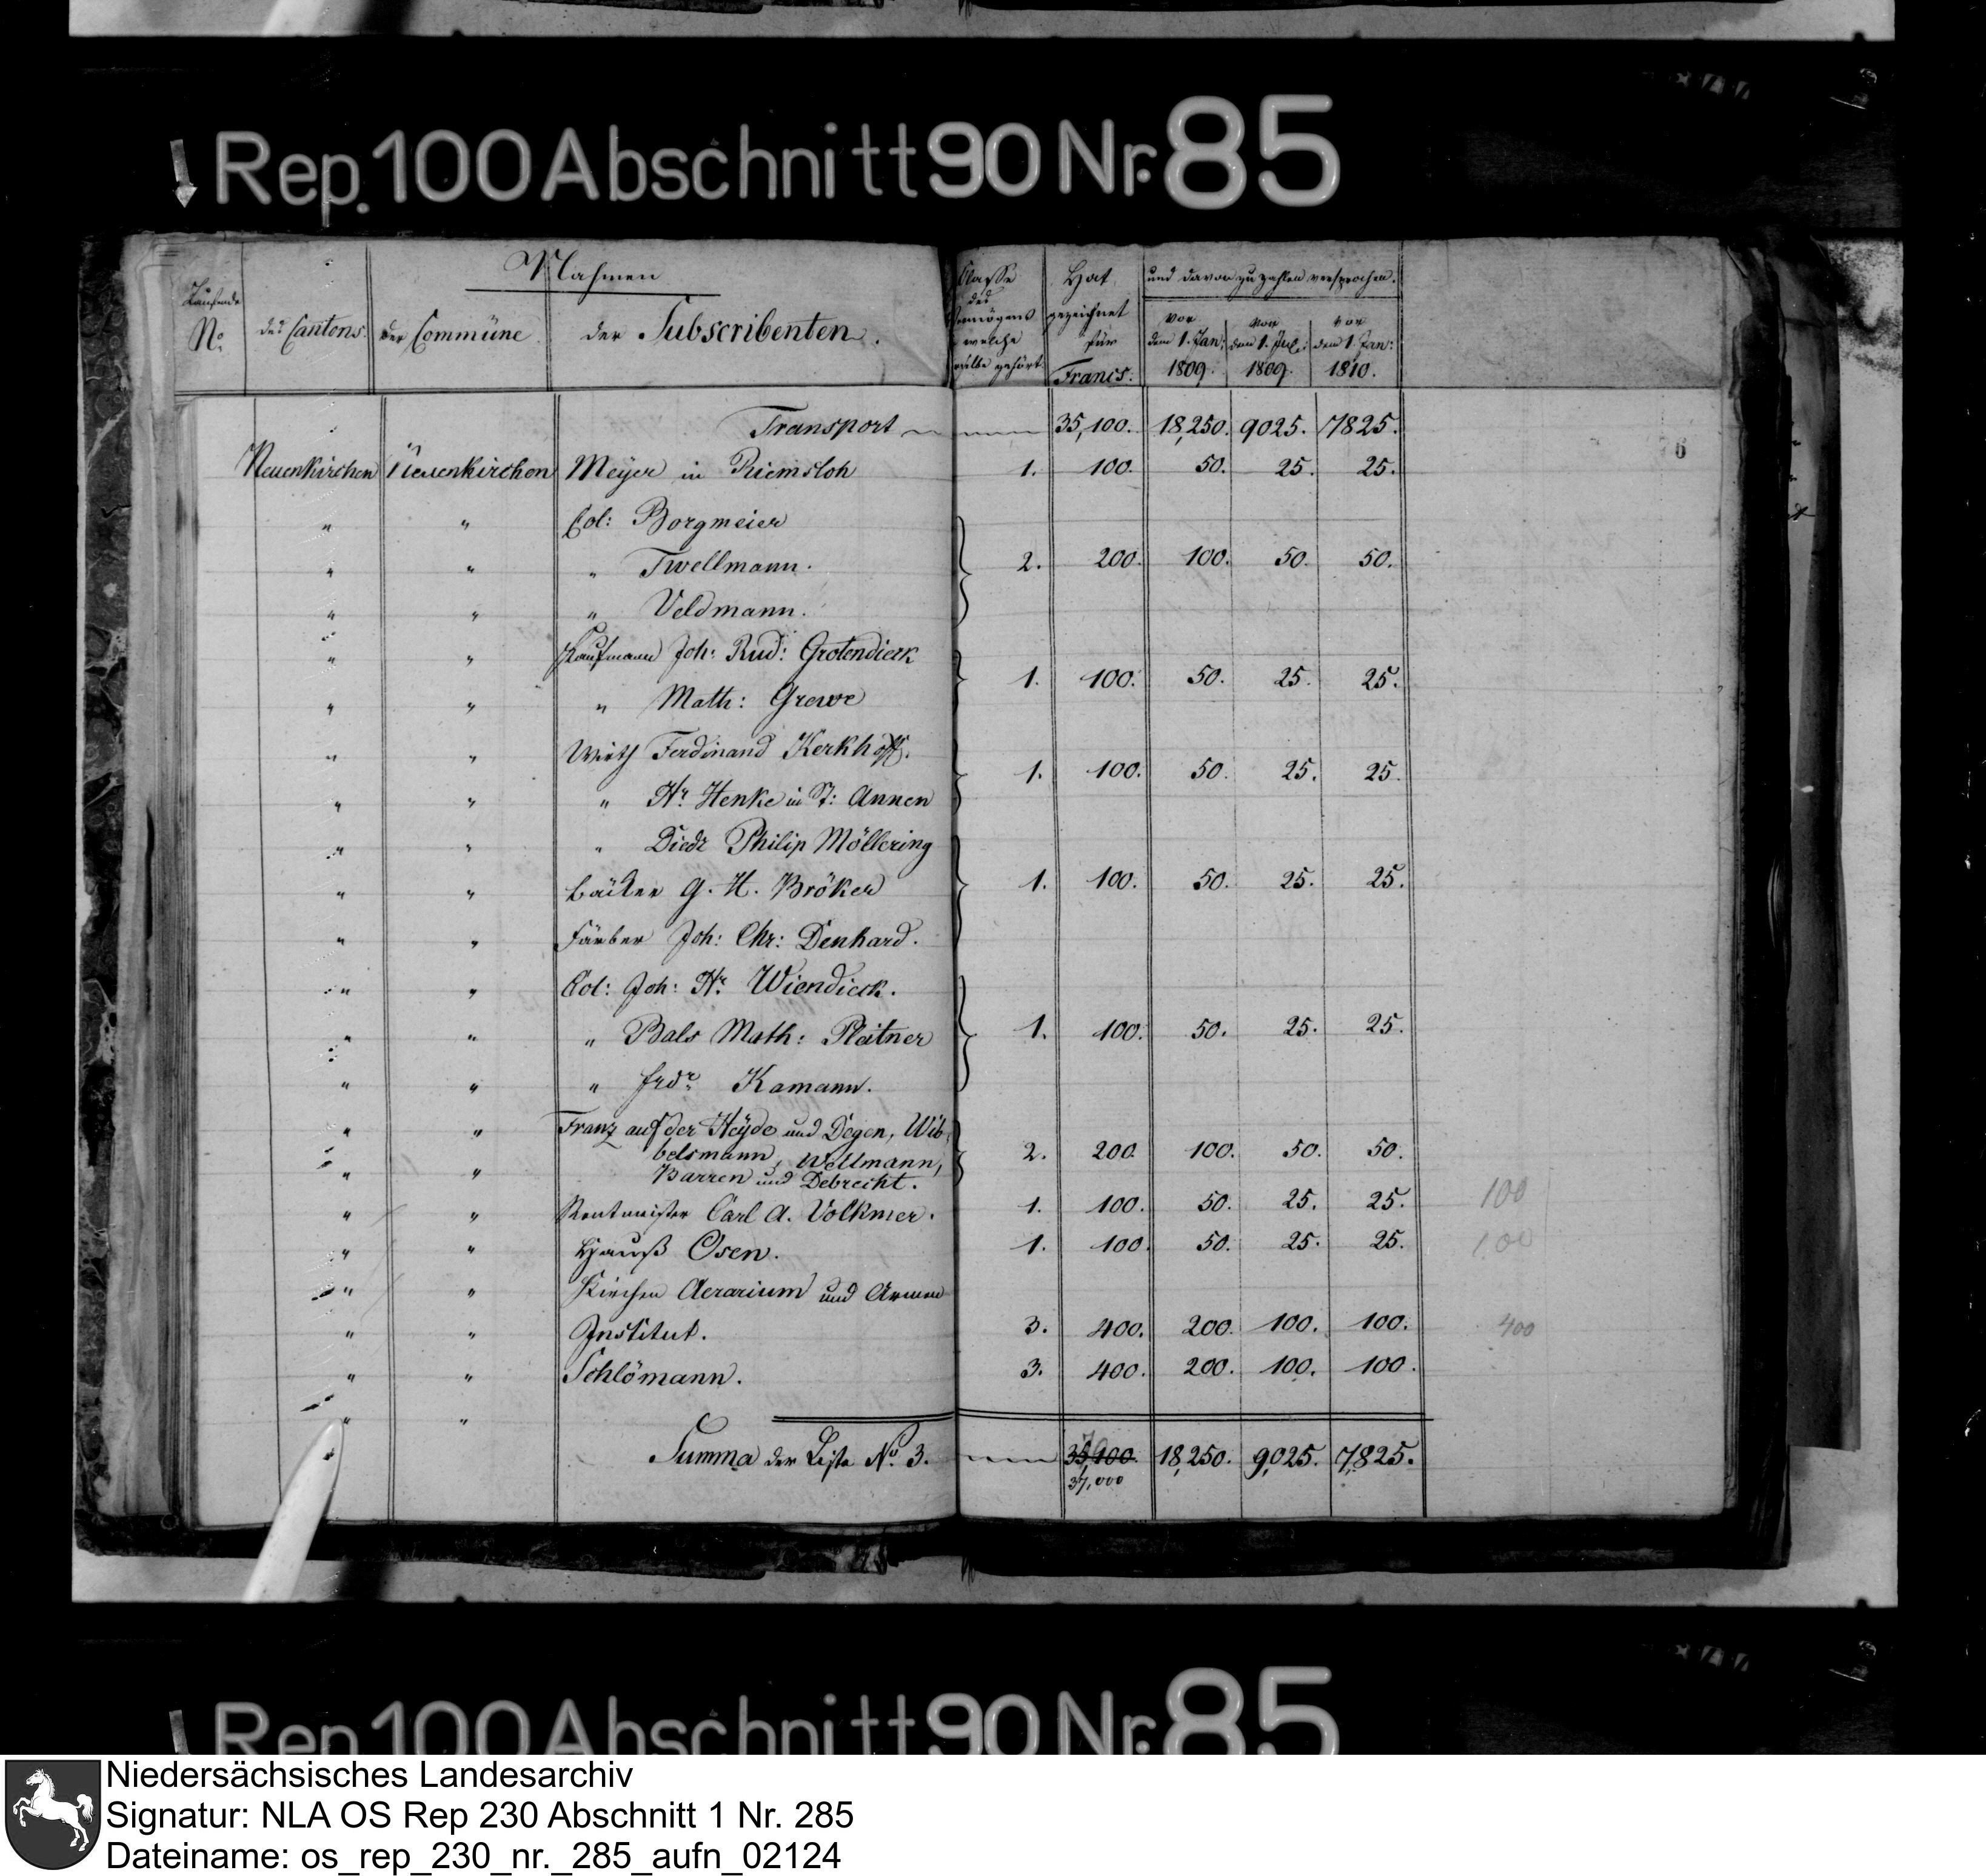 Rep. 100 Abschnitt 90 Nr. 85
Nahmen
Laufende No.
des Cantons.
der Commüne
der Subscribenten.
Classe des Vermögens welche gehört
Hat gezeichnet für Francs.
und davon zu zahlen versprochen.
vor dem 1. Jan: 1809.
vor dem 1. Jul: 1809.
vor dem 1. Jan: 1810.
Transport 35,100. 18,250. 9025. 7825.
6
Neuenkirchen Neuenkirchen Meyer in Riemsloh 1. 100. 50. 25. 25.
" " Col: Borgmeier
" " " Twellmann. 2. 200. 100. 50. 50.
" " " Veldmann.
" " Kaufmann Joh: Rud: Grotendieck
" " " Math: Grewe 1. 100. 50. 25. 25.
" " Wirth Ferdinand Kerkhoff.
" " " Hr. Henke in St: Annen 1. 100. 50. 25. 25.
" " " Diedr Philip Möllering
" " Bäcker G. H. Bröker 1. 100. 50. 25. 25.
" " Färber Joh: Chr: Denhard.
" " Col: Joh: Hr. Wiendieck.
" " " Bals Math: Platner 1. 100. 50. 25. 25.
" " " frdr. Kamann.
" " Franz auf der Heyde und Degen, Wib-
belsmann, Wellmann, 2. 200. 100. 50. 50.
" " Barren und Debrecht.
" " Rentmeister Carl A. Volkmer. 1. 100. 50. 25. 25. 100
" " Hauß Osen. 1. 100. 50. 25. 25. 100
" " Kirchen Aerarium und Armen
" " Institut. 3. 400. 200. 100. 100. 400
" " Schlömann. 3. 400. 200. 100. 100.
" "
Summa der Liste No. 3. 35,100. 18,250. 9,025. 7,825.
37,000
Rep. 100 Abschnitt 90 Nr. 85
Niedersächsisches Landesarchiv
Signatur: NLA OS Rep 230 Abschnitt 1 Nr. 285
Dateiname: os_rep_230_nr._285_aufn_02124